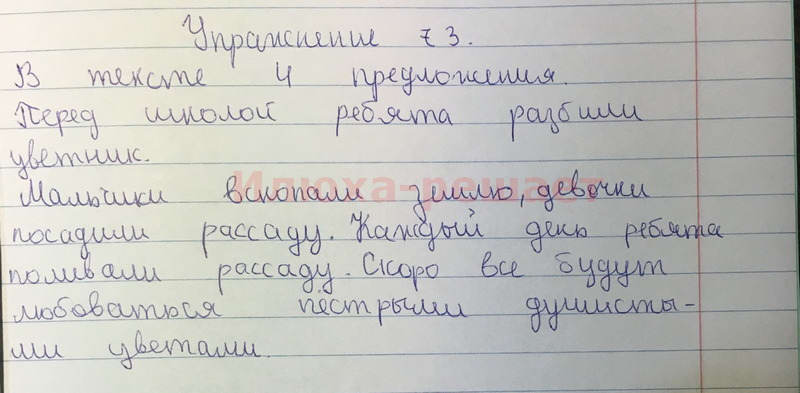 Упражнение 73.
В тексте 4 предложения.
Перед школой ребята разбили
цветник.
Илюха-решает
Мальчики вскопали землю, девочки
посадили рассаду. Каждый день ребята
поливали рассаду. Скоро все будут
любоваться пёстрыми душисты-
ми цветами.